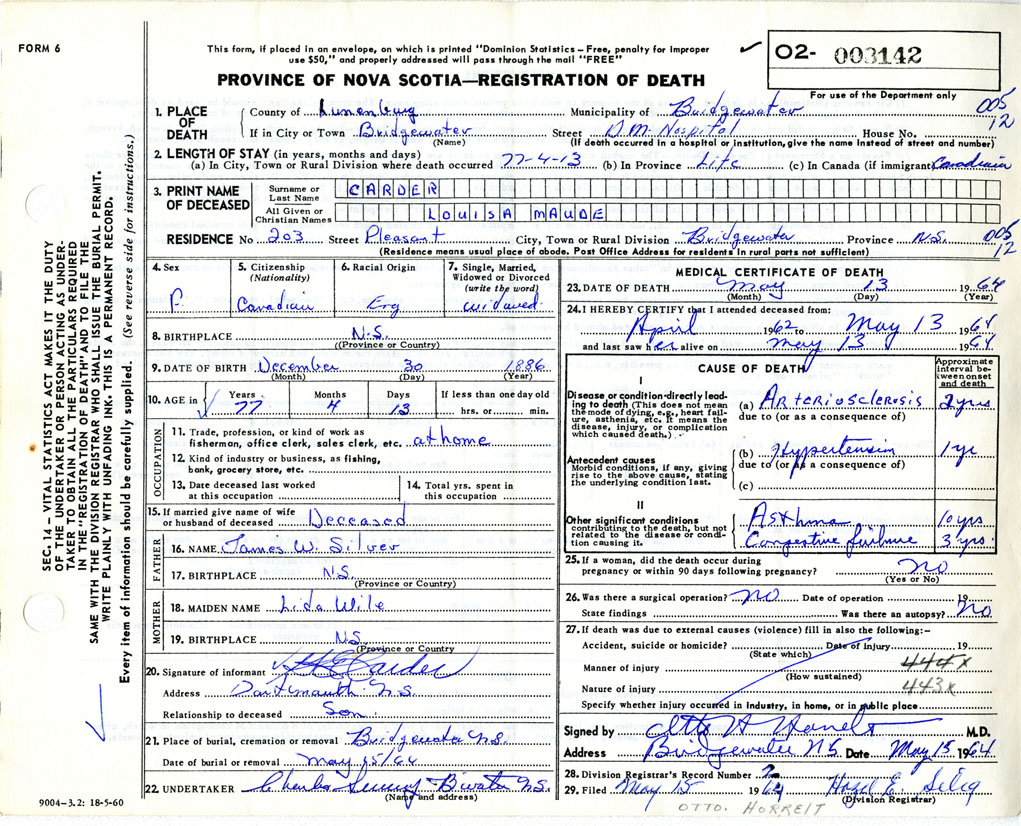 FORM 6
This form, if placed in an envelope, on which is printed "Dominion Statistics – Free, penalty for improper
use $50," and properly addressed will pass through the mail "FREE"
✓ 02- 003142
PROVINCE OF NOVA SCOTIA—REGISTRATION OF DEATH
For use of the Department only
1. PLACE OF DEATH { County of Lunenburg Municipality of Bridgewater 005
If in City or Town Bridgewater Street D.M. Hospital House No. 12
(Name) (If death occurred in a hospital or institution, give the name instead of street and number)
2. LENGTH OF STAY (in years, months and days)
(a) In City, Town or Rural Division where death occurred 77-4-13 (b) In Province Life (c) In Canada (if immigrant) Canadian
3. PRINT NAME OF DECEASED { Surname or Last Name CARDER
All Given or Christian Names LOUISA MAUDE
RESIDENCE No 203 Street Pleasant City, Town or Rural Division Bridgewater Province N.S. 005
12
(Residence means usual place of abode. Post Office Address for residents in rural parts not sufficient)
4. Sex F.
5. Citizenship (Nationality) Canadian
6. Racial Origin Eng
7. Single, Married, Widowed or Divorced (write the word) widowed
8. BIRTHPLACE N.S.
((Province or Country)
9. DATE OF BIRTH December 30 1886
(Month) (Day) (Year)
10. AGE in ✓ Years 77 Months 4 Days 13 If less than one day old hrs. or min.
OCCUPATION
11. Trade, profession, or kind of work as
fisherman, office clerk, sales clerk, etc. at home
12. Kind of industry or business, as fishing,
bank, grocery store, etc.
13. Date deceased last worked
at this occupation
14. Total yrs. spent in
this occupation
15. If married give name of wife
or husband of deceased Deceased
FATHER
16. NAME James W. Silver
17. BIRTHPLACE N.S.
(Province or Country)
MOTHER
18. MAIDEN NAME Lida Wile
19. BIRTHPLACE N.S.
(Province or Country)
20. Signature of informant Carder
Address Dartmouth N.S.
Relationship to deceased Son.
21. Place of burial, cremation or removal Bridgewater N.S.
Date of burial or removal May 15/64
22. UNDERTAKER Charles B'water N.S.
(Name and address)
MEDICAL CERTIFICATE OF DEATH
23. DATE OF DEATH May 13 1964
(Month) (Day) (Year)
24. I HEREBY CERTIFY that I attended deceased from:
April 1962 to May 13 1964
and last saw her alive on May 13 1964
CAUSE OF DEATH
Approximate interval between onset and death
I
Disease or condition directly leading to death (This does not mean
the mode of dying, e.g., heart failure, asthenia, etc. It means the
disease, injury, or complication
which caused death.)
(a) Arteriosclerosis 2 yrs
due to (or as a consequence of)
Antecedent causes
Morbid conditions, if any, giving
rise to the above cause, stating
the underlying condition last.
(b) Hypertension 1 yr
due to (or as a consequence of)
(c)
II
Other significant conditions
contributing to the death, but not
related to the disease or condition causing it.
Asthma 10 yrs
Congestive failure 3 yrs.
25. If a woman, did the death occur during
pregnancy or within 90 days following pregnancy? No
(Yes or No)
26. Was there a surgical operation? No Date of operation 19
State findings Was there an autopsy? No
27. If death was due to external causes (violence) fill in also the following:–
Accident, suicide or homicide? Date of injury 19
(State which)
Manner of injury 444x
(How sustained)
Nature of injury 443x
Specify whether injury occurred in industry, in home, or in public place
Signed by M.D.
Address Bridgewater N.S. Date May 15 1964
28. Division Registrar's Record Number 2
29. Filed May 15 1964 Hazel E. Selig
(Division Registrar)
OTTO. HORREIT
SEC. 14 – VITAL STATISTICS ACT MAKES IT THE DUTY
OF THE UNDERTAKER OR PERSON ACTING AS UNDER-
TAKER TO OBTAIN ALL THE PARTICULARS REQUIRED
IN THE "REGISTRATION OF DEATH" AND TO FILE THE
SAME WITH THE DIVISION REGISTRAR WHO SHALL ISSUE THE BURIAL PERMIT.
WRITE PLAINLY WITH UNFADING INK. THIS IS A PERMANENT RECORD.
Every item of information should be carefully supplied. (See reverse side for instructions.)
9004–3.2: 18-5-60